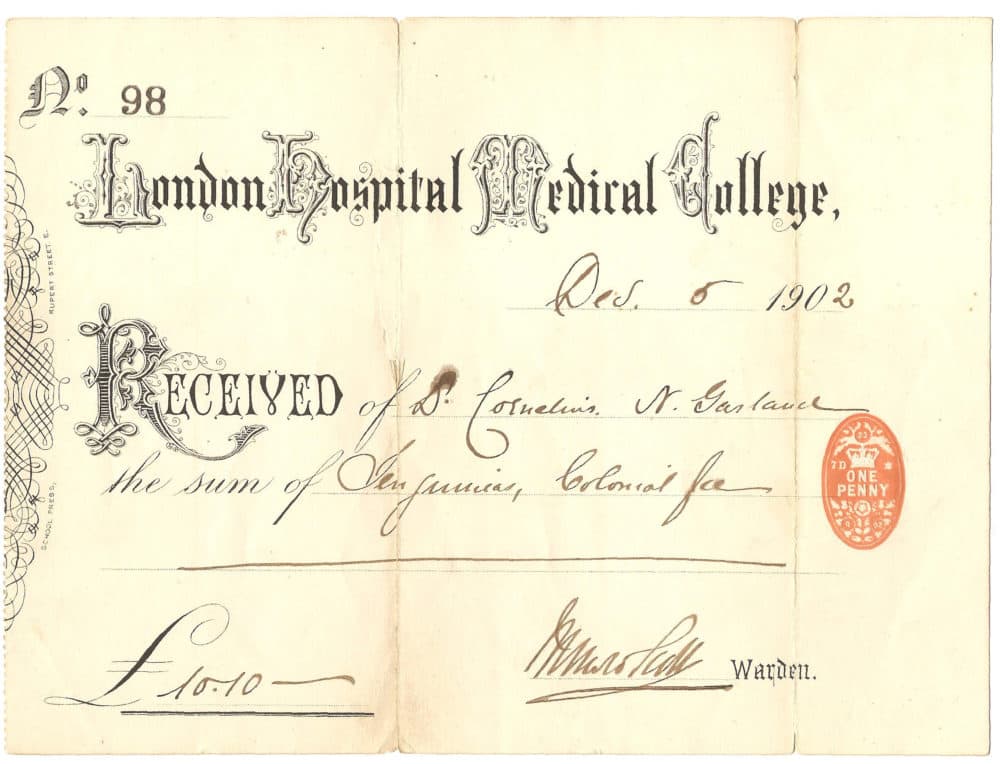 Nº. 98
London Hospital Medical College,
Dec. 5 1902
RECEIVED of Dr. Cornelius. N. Garland
the sum of Ten guineas, Colonial fee
£10.10
Munro Scott Warden.
SCHOOL PRESS,
RUPERT STREET E.
23
7 D
ONE
PENNY
9 02